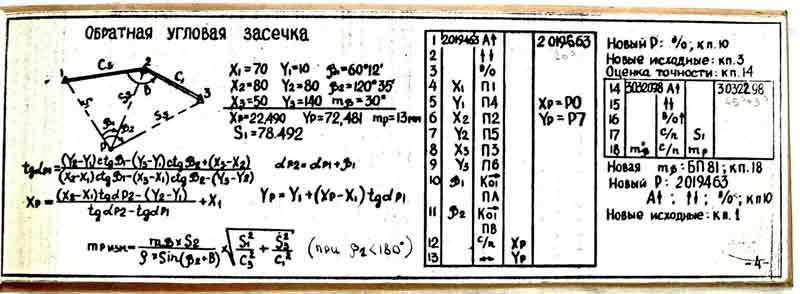 ОБРАТНАЯ УГЛОВАЯ ЗАСЕЧКА
1 C3 2 C1 3
B
S1 S3 S2
β1 β2
P
X1=70 Y1=10 β1=60°12'
X2=80 Y2=80 β2=120°35'
X3=50 Y3=140 mβ=30"
Xp=22,490 Yp=72,481 mp=13мм
S1=78.492
tgαP1=(Y2-Y1)ctgβ1-(Y3-Y1)ctgβ2+(X3-X2)
(X2-X1)ctgβ1-(X3-X1)ctgβ2-(Y3-Y2)
αP2=αP1+β1
XP=(X2-X1)tgαP2-(Y2-Y1)+X1
tgαP2-tgαP1
YP=Y1+(XP-X1)tgαP1
mPизм=mβ×S2×√S1²/C3²+S3²/C1² (при β2<180°)
ρ×Sin(β2+B)
1 2019463 А↑ 2019463
2 ↑↑
3 В/О
4 X1 П1
5 Y1 П4
6 X2 П2
7 Y2 П5
8 X3 П3
9 Y3 П6
10 β1 Kот
ПА
11 β2 Kот
ПВ
12 С/п Xp
13 ↔ Yp
Xp=P0
Yp=P7
Новый P: В/О, кл.10
Новые исходные: кл.3
Оценка точности: кл.14
14 3032298 А↑ 3032298
15 ↑↑
16 В/О↑
17 С/п S1
18 mβ С/п mp
Новая mβ: БП 81; кл.18
Новый P: 2019463
А↑, ↑↑, В/О, кл10
Новые исходные: кл.1
-4-